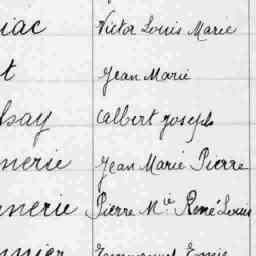 iac Victor Louis Marie
t Jean Marie
bay Albert Joseph
nerie Jean Marie Pierre
nerie Pierre M.ie René Louis
nnier Emmanuel Emile